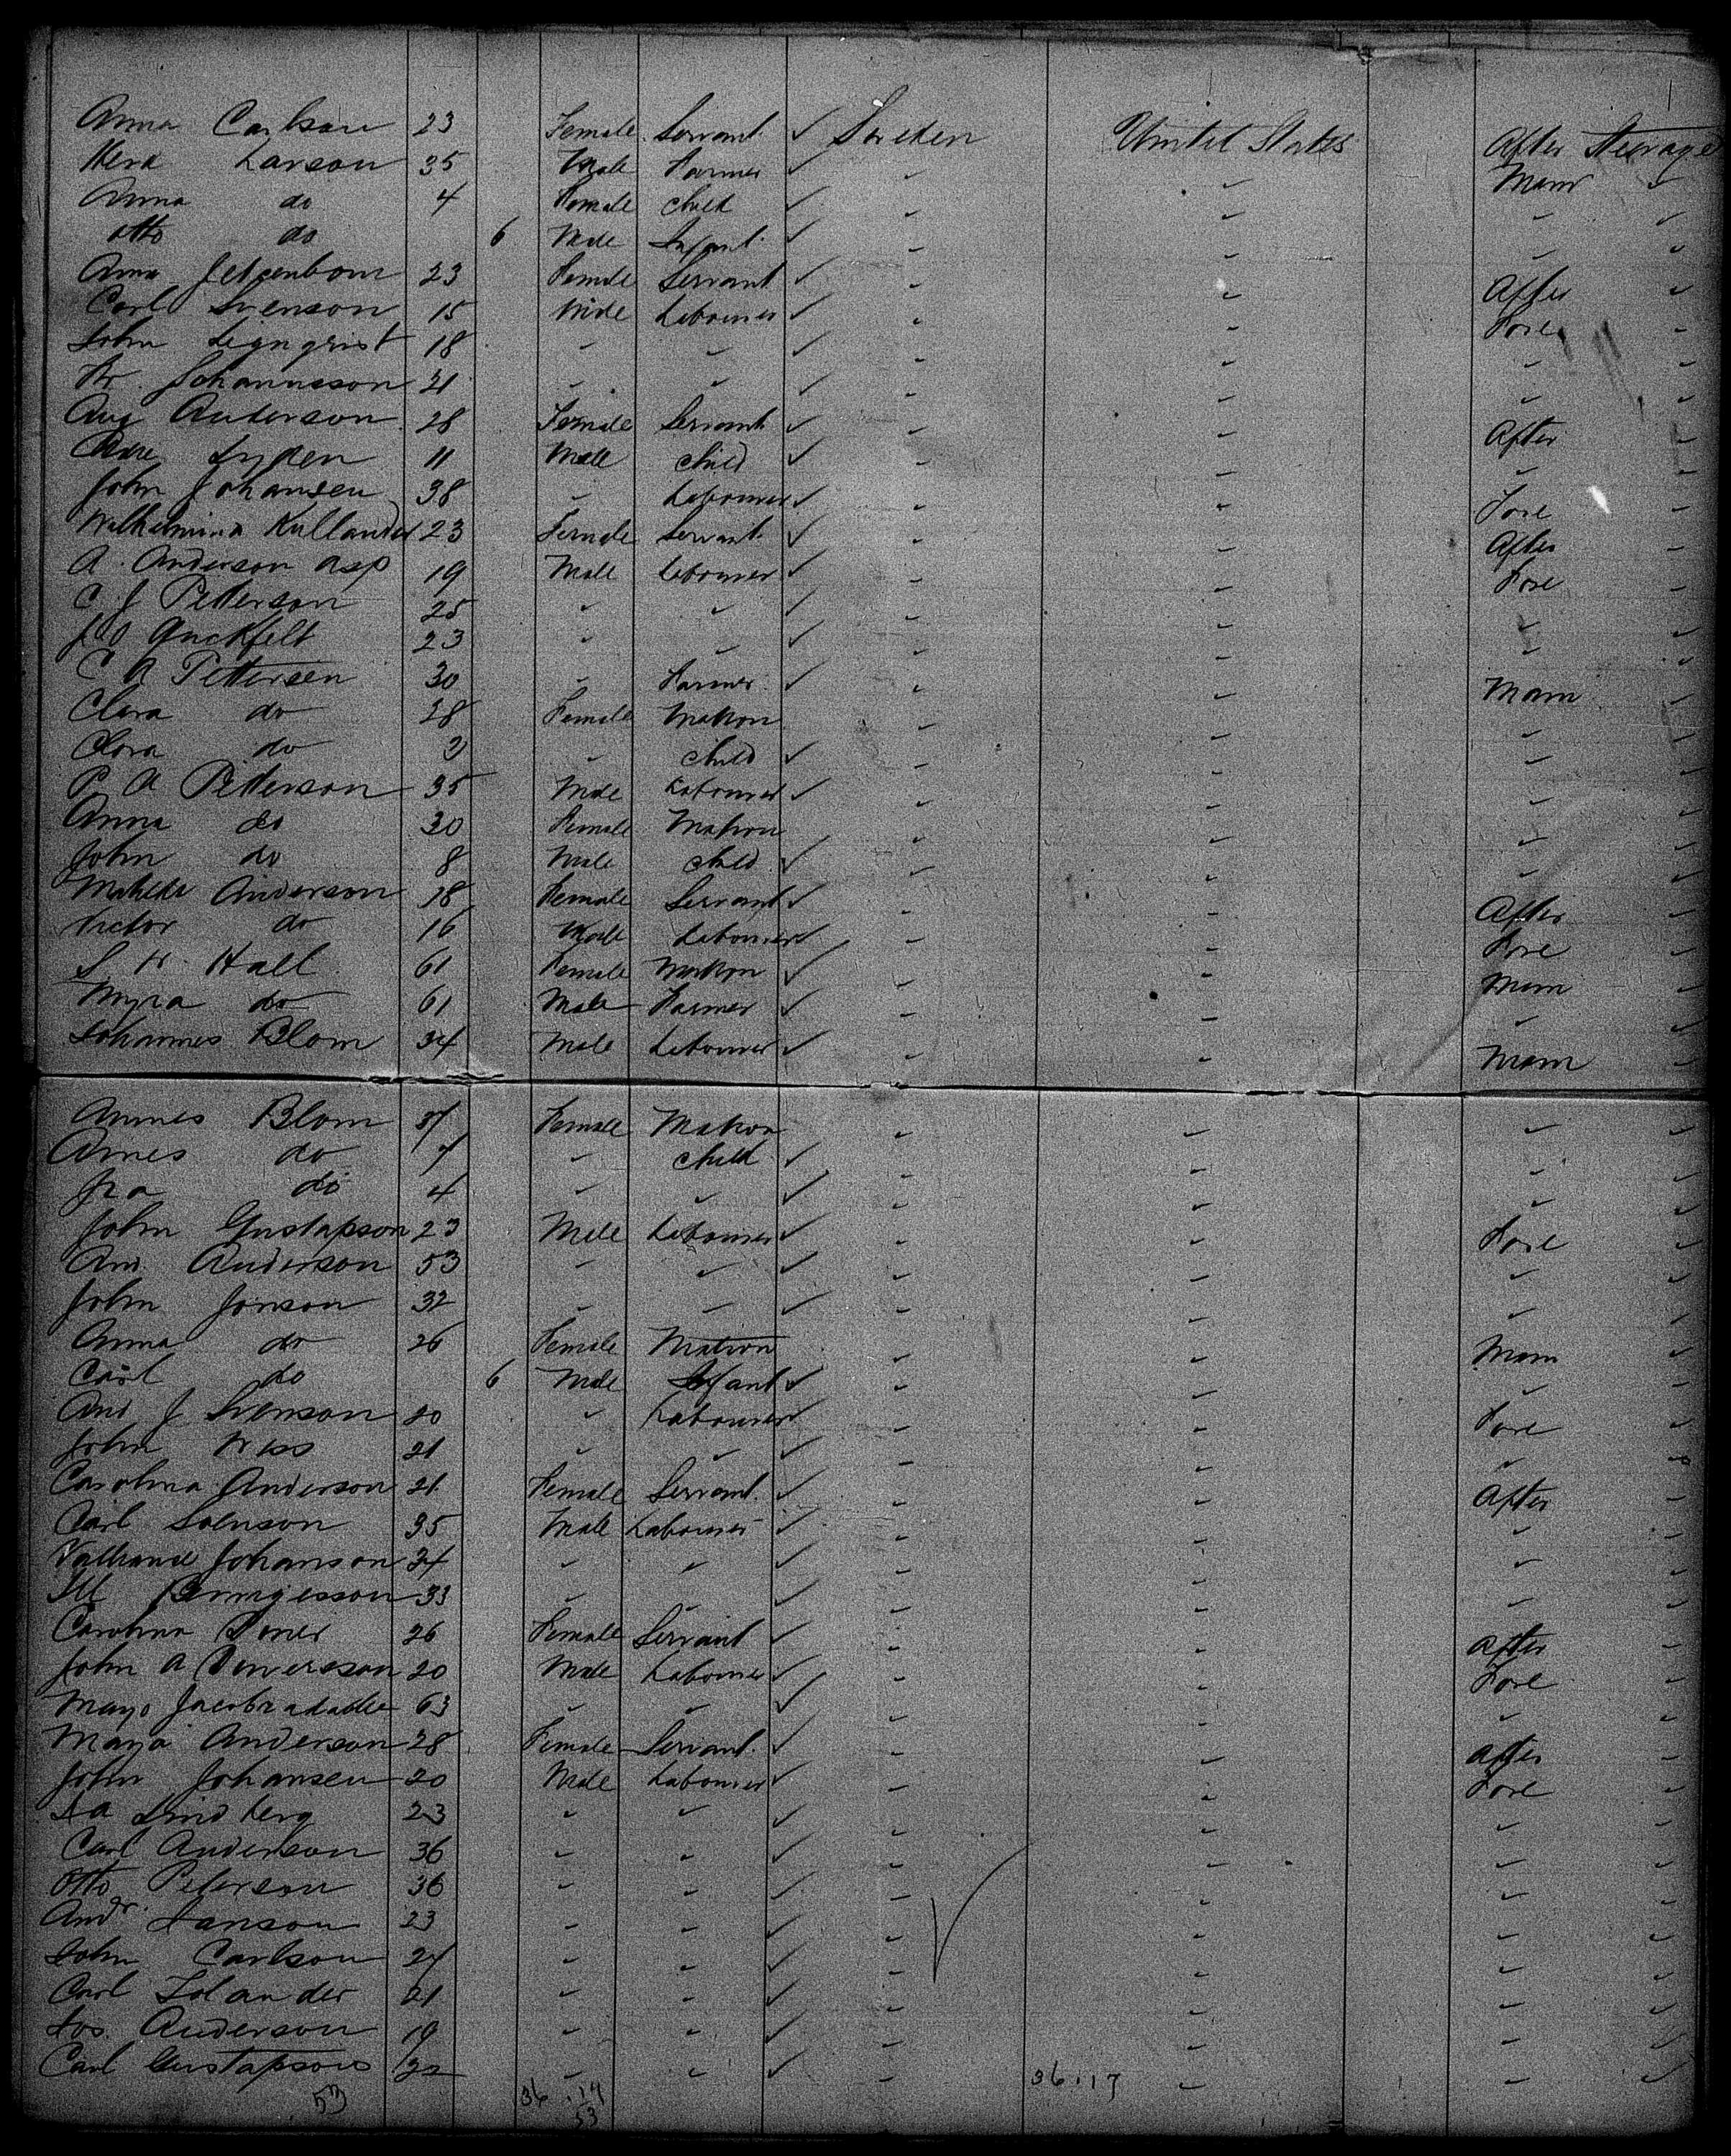 Anna Carlson 23 Female Servant ✓ Sweden United States After Steerage
Larson 35 Male Farmer ✓ Main
Anna do 4 Female child ✓
Otto do 6 Male Infant ✓
Anna 23 Female Servant ✓ After
Carl Svenson 15 Male Labourer ✓ Fore
John 18 ✓
Johannsson 21 ✓
Aug Anderson 28 Female Servant ✓ After
Lyden 11 Male child ✓
John Johansen 38 Labourer ✓ Fore
Wilhelmina Kullander 23 Female Servant ✓ After
A. Anderson Asp 19 Male Labourer ✓ Fore
C J Petterson 25 ✓
J O Quckfelt 23 ✓
C A Pettersen 30 Farmer ✓ Main
Clara do 28 Female Matron
Clara do child ✓
P A Petterson 35 Male Labourer ✓
Anna do 30 Female Matron
John do 8 Male child ✓
Matilda Anderson 18 Female Servant ✓ After
Victor do 16 Male Labourer ✓ Fore
Hall 61 Female Matron ✓ Main
Myra do 61 Male Farmer ✓
Johannes Blom 34 Male Labourer ✓ Main
Blom Female Matron
do 7 child ✓
do 4 ✓
John Gustapson 23 Male Labourer ✓ Fore
And. Anderson 53 ✓
John Jonson 32 ✓
Anna do 26 Female Matron Main
Carl do 6 Male Infant ✓
And J Svenson 20 Labourer ✓ Fore
John 21 ✓
Carolina Anderson 21 Female Servant ✓ After
Carl Svenson 35 Male Labourer ✓
Johanson 24 ✓
33 ✓
Carolina 26 Female Servant ✓ After
John A 20 Male Labourer ✓ Fore
63 ✓
Maja Anderson 28 Female Servant ✓ After
John Johansen 20 Male Labourer ✓ Fore
Lindberg 23 ✓
Carl Anderson 36 ✓
Otto Peterson 36 ✓
Andr. 23 ✓
John Carlson 27 ✓
Carl 21 ✓
Jos. Anderson 19 ✓
Carl Gustapson 32 ✓
53 36.17 36.17
53